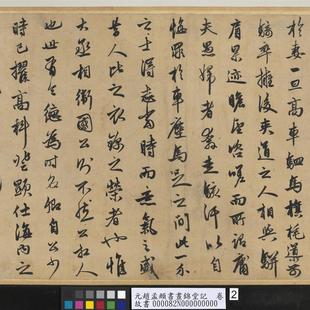 於妻一旦高車駟馬旗旄導前
騎卒擁後夾道之人相與駢
肩累迹瞻望咨嗟而所謂庸
夫愚婦者奔走駭汗以自
悔罪於車塵馬足之間此一介
之士得志當時而意氣之盛
昔人比之衣錦之榮者也惟
大丞相衛國公則不然公相人
也世有令德為時名卿自公少
時已擢高科登顯仕海內之
元趙孟頫書晝錦堂記 卷
故書 000082N000000000
2